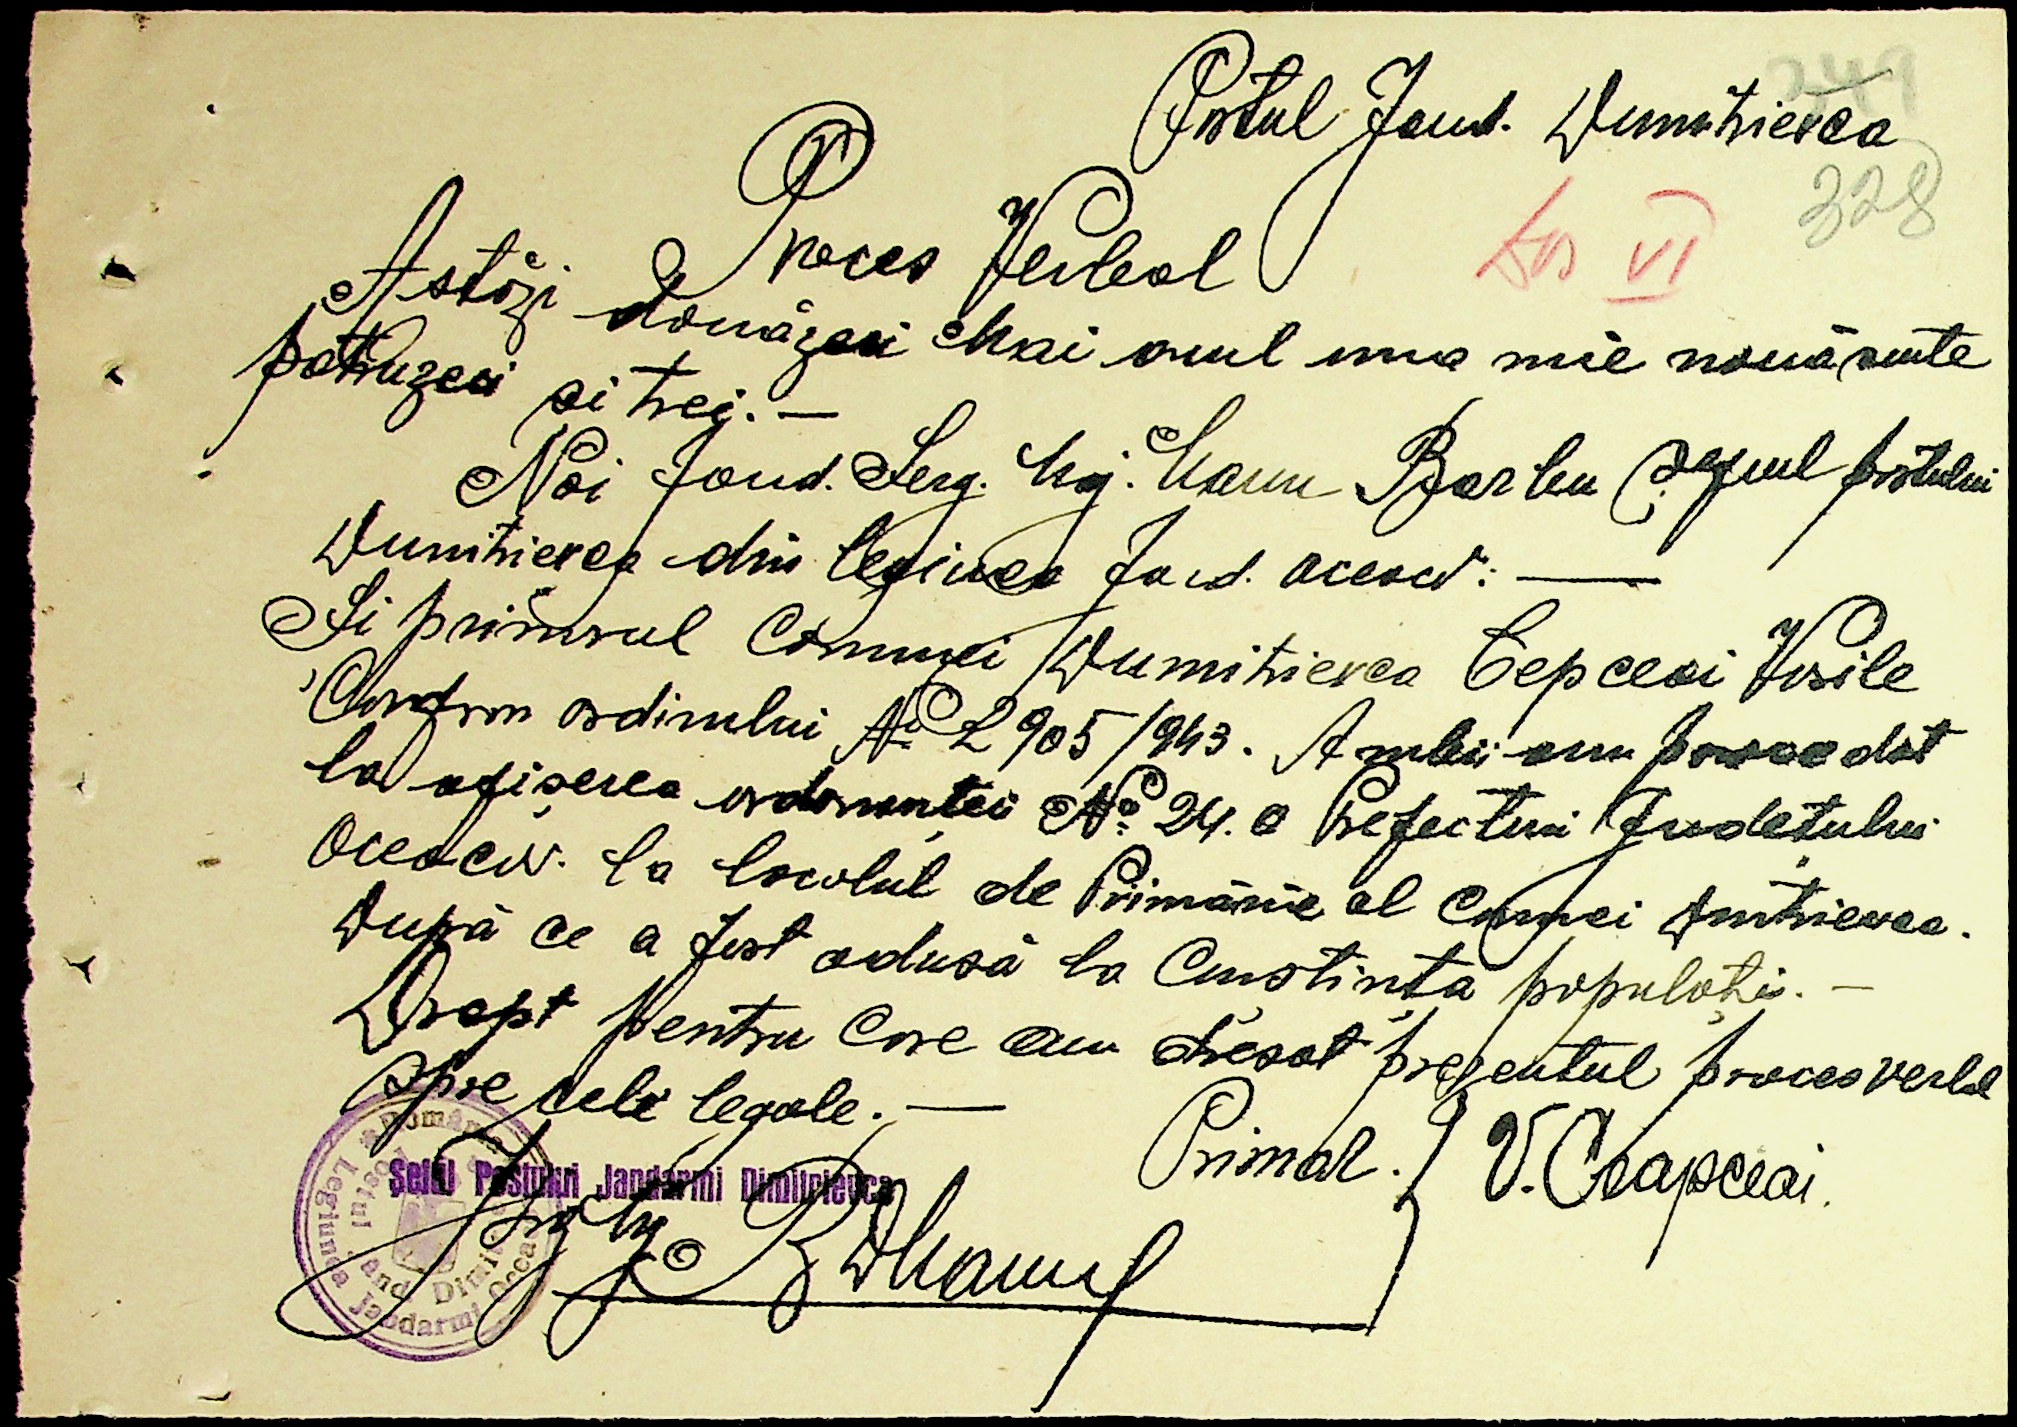 349
Postul Jand. Dumitrievca
328
Dos VI
Proces Verbal
Astăzi douăzeci Mai anul una mie nouă sute
patruzeci si trei. —
Noi Jand. Serg. Maj. Manu Barbu șeful postului
Dumitrievca din Legiunea Jand. Oceacov: —
Si primarul Comunei Dumitrievca Cepceai Vasile
Conform ordinului No 2905/943. Ambii am procedat
la afișerea ordonanței No 24. a Prefecturi Județului
Oceacov. la localul de Primărie al Comunei Dmitrievca.
După ce a fost adusă la Cunoștința populației. —
Drept pentru care am dresat prezentul proces verbal
spre cele legale. —
Primar. V. Ceapceai.
Șeful Postului Jandarmi Dimitrievca
România
Legiunea Jandarmi Oceacov
Postul Jand. Dimitrievca